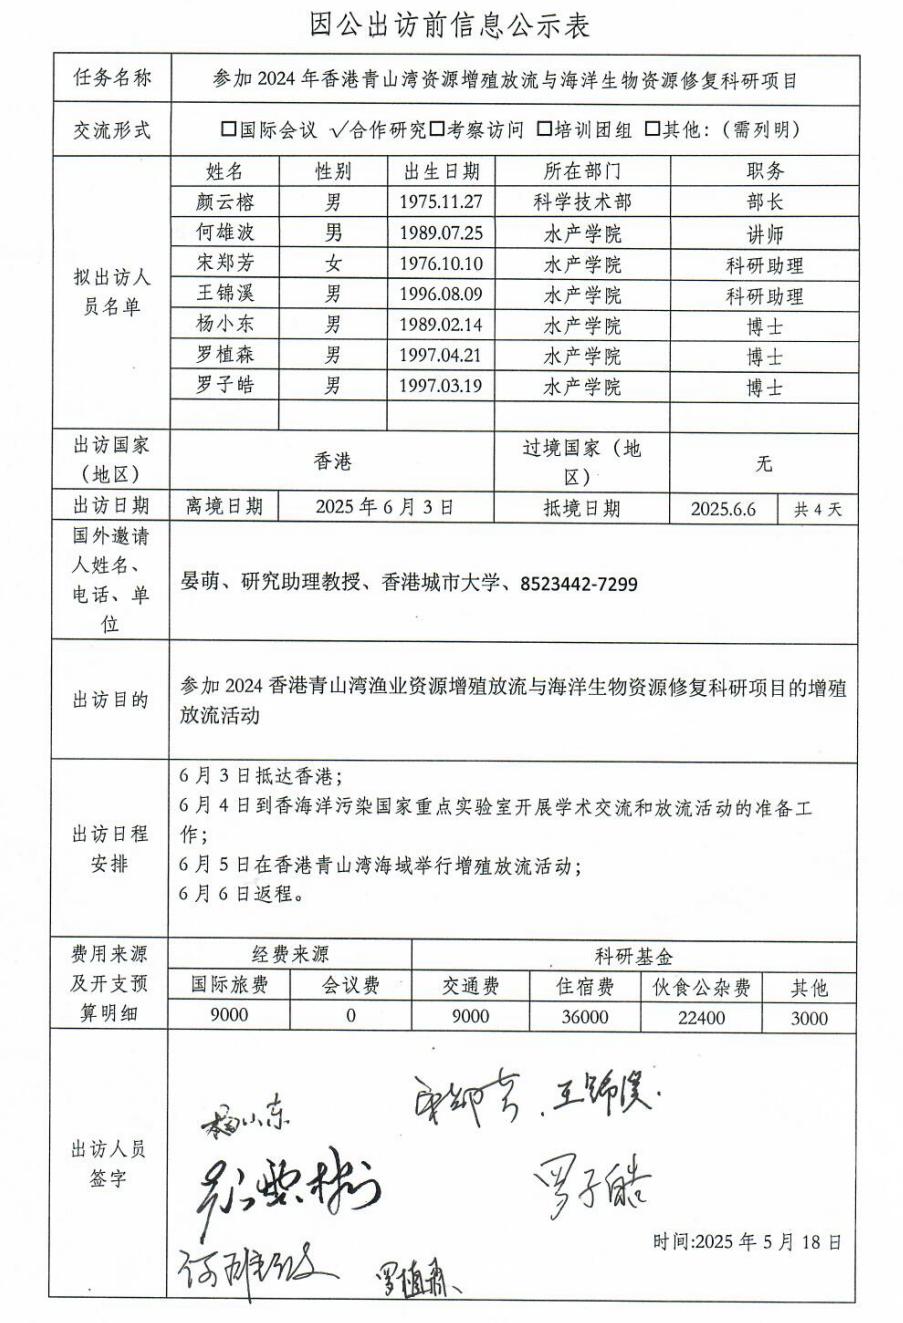 因公出访前信息公示表
任务名称 参加 2024 年香港青山湾资源增殖放流与海洋生物资源修复科研项目
交流形式 □国际会议 √合作研究□考察访问 □培训团组 □其他:(需列明)
拟出访人员名单
姓名 性别 出生日期 所在部门 职务
颜云榕 男 1975.11.27 科学技术部 部长
何雄波 男 1989.07.25 水产学院 讲师
宋郑芳 女 1976.10.10 水产学院 科研助理
王锦溪 男 1996.08.09 水产学院 科研助理
杨小东 男 1989.02.14 水产学院 博士
罗植森 男 1997.04.21 水产学院 博士
罗子皓 男 1997.03.19 水产学院 博士
出访国家(地区) 香港 过境国家(地区) 无
出访日期 离境日期 2025 年 6 月 3 日 抵境日期 2025.6.6 共 4 天
国外邀请人姓名、电话、单位
晏萌、研究助理教授、香港城市大学、8523442-7299
出访目的
参加 2024 香港青山湾渔业资源增殖放流与海洋生物资源修复科研项目的增殖
放流活动
出访日程安排
6 月 3 日抵达香港;
6 月 4 日到香海洋污染国家重点实验室开展学术交流和放流活动的准备工
作;
6 月 5 日在香港青山湾海域举行增殖放流活动;
6 月 6 日返程。
费用来源及开支预算明细
经费来源 科研基金
国际旅费 会议费 交通费 住宿费 伙食公杂费 其他
9000 0 9000 36000 22400 3000
出访人员签字
杨小东 宋郑芳 王锦溪
颜云榕 罗子皓
时间:2025 年 5 月 18 日
何雄波 罗植森